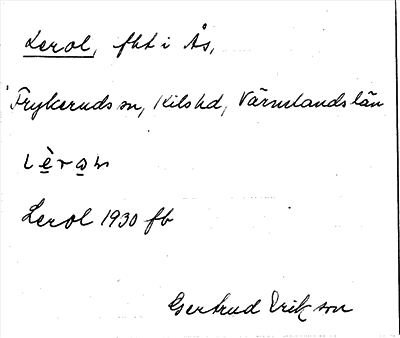 Lerol, fht i Ås,
Frykeruds sn, Kils hd, Värmlands län
Lerol 1930 fb
Gertrud Erikson